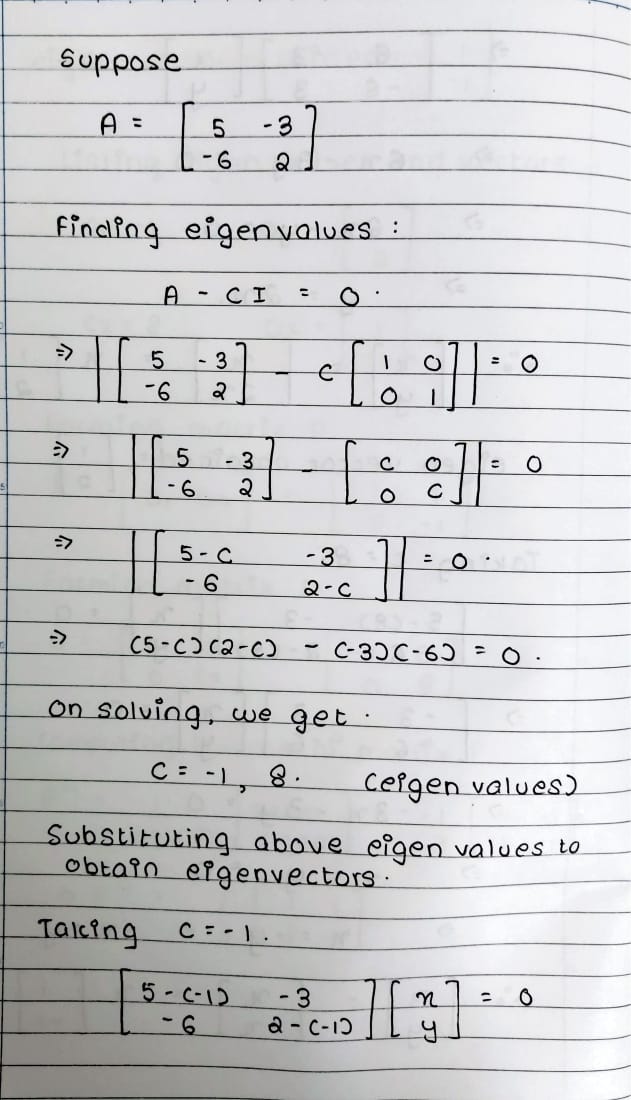 Suppose
A = [ 5 -3
-6 2 ]
Finding eigenvalues :
A - CI = 0 .
⇒ | [ 5 -3
-6 2 ] - c [ 1 0
0 1 ] | = 0
⇒ | [ 5 -3
-6 2 ] - [ c 0
0 c ] | = 0
⇒ | [ 5-c -3
-6 2-c ] | = 0 .
⇒ (5-c)(2-c) - (-3)(-6) = 0 .
On solving, we get .
C = -1, 8. (eigen values)
Substituting above eigen values to
obtain eigenvectors .
Taking C = -1 .
[ 5-(-1) -3
-6 2-(-1) ] [ x
y ] = 0